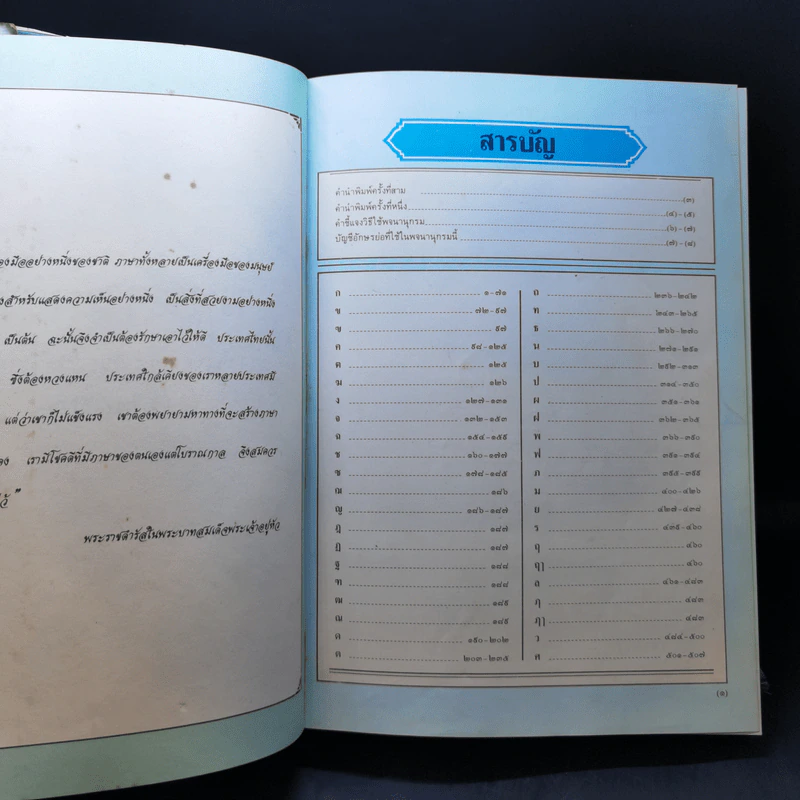 องมืออย่างหนึ่งของชาติ ภาษาทั้งหลายเป็นเครื่องมือของมนุษย์
งสำหรับแสดงความเห็นอย่างหนึ่ง เป็นสิ่งที่สวยงามอย่างหนึ่ง
เป็นต้น ฉะนั้นจึงจำเป็นต้องรักษาเอาไว้ให้ดี ประเทศไทยนั้น
ซึ่งต้องหวงแหน ประเทศใกล้เคียงของเราหลายประเทศมี
แต่ว่าเขาก็ไม่แข็งแรง เขาต้องพยายามหาทางที่จะสร้างภาษา
อง เรามีโชคดีที่มีภาษาของตนเองแต่โบราณกาล จึงสมควร
ว้ ”
พระราชดำรัสในพระบาทสมเด็จพระเจ้าอยู่หัว
สารบัญ
คำนำพิมพ์ครั้งที่สาม (๓)
คำนำพิมพ์ครั้งที่หนึ่ง (๔) - (๕)
คำชี้แจงวิธีใช้พจนานุกรม (๖) - (๗)
บัญชีอักษรย่อที่ใช้ในพจนานุกรมนี้ (๗) - (๘)
ก ๑-๗๑
ข ๗๒-๙๗
ฃ ๙๗
ค ๙๘-๑๒๕
ฅ ๑๒๕
ฆ ๑๒๖
ง ๑๒๗-๑๓๑
จ ๑๓๒-๑๕๓
ฉ ๑๕๔-๑๕๙
ช ๑๖๐-๑๗๗
ซ ๑๗๘-๑๘๕
ฌ ๑๘๖
ญ ๑๘๖-๑๘๗
ฎ ๑๘๗
ฏ ๑๘๗
ฐ ๑๘๘
ฑ ๑๘๘
ฒ ๑๘๙
ณ ๑๘๙
ด ๑๙๐-๒๐๒
ต ๒๐๓-๒๓๕
ถ ๒๓๖-๒๔๒
ท ๒๔๓-๒๖๕
ธ ๒๖๖-๒๗๐
น ๒๗๑-๒๙๑
บ ๒๙๒-๓๑๓
ป ๓๑๔-๓๕๐
ผ ๓๕๑-๓๖๑
ฝ ๓๖๒-๓๖๕
พ ๓๖๖-๓๙๐
ฟ ๓๙๑-๓๙๔
ภ ๓๙๕-๓๙๙
ม ๔๐๐-๔๒๖
ย ๔๒๗-๔๓๘
ร ๔๓๙-๔๖๐
ฤ ๔๖๐
ฤๅ ๔๖๐
ล ๔๖๑-๔๘๓
ฦ ๔๘๓
ฦๅ ๔๘๓
ว ๔๘๔-๕๐๐
ศ ๕๐๑-๕๐๗
(๑)